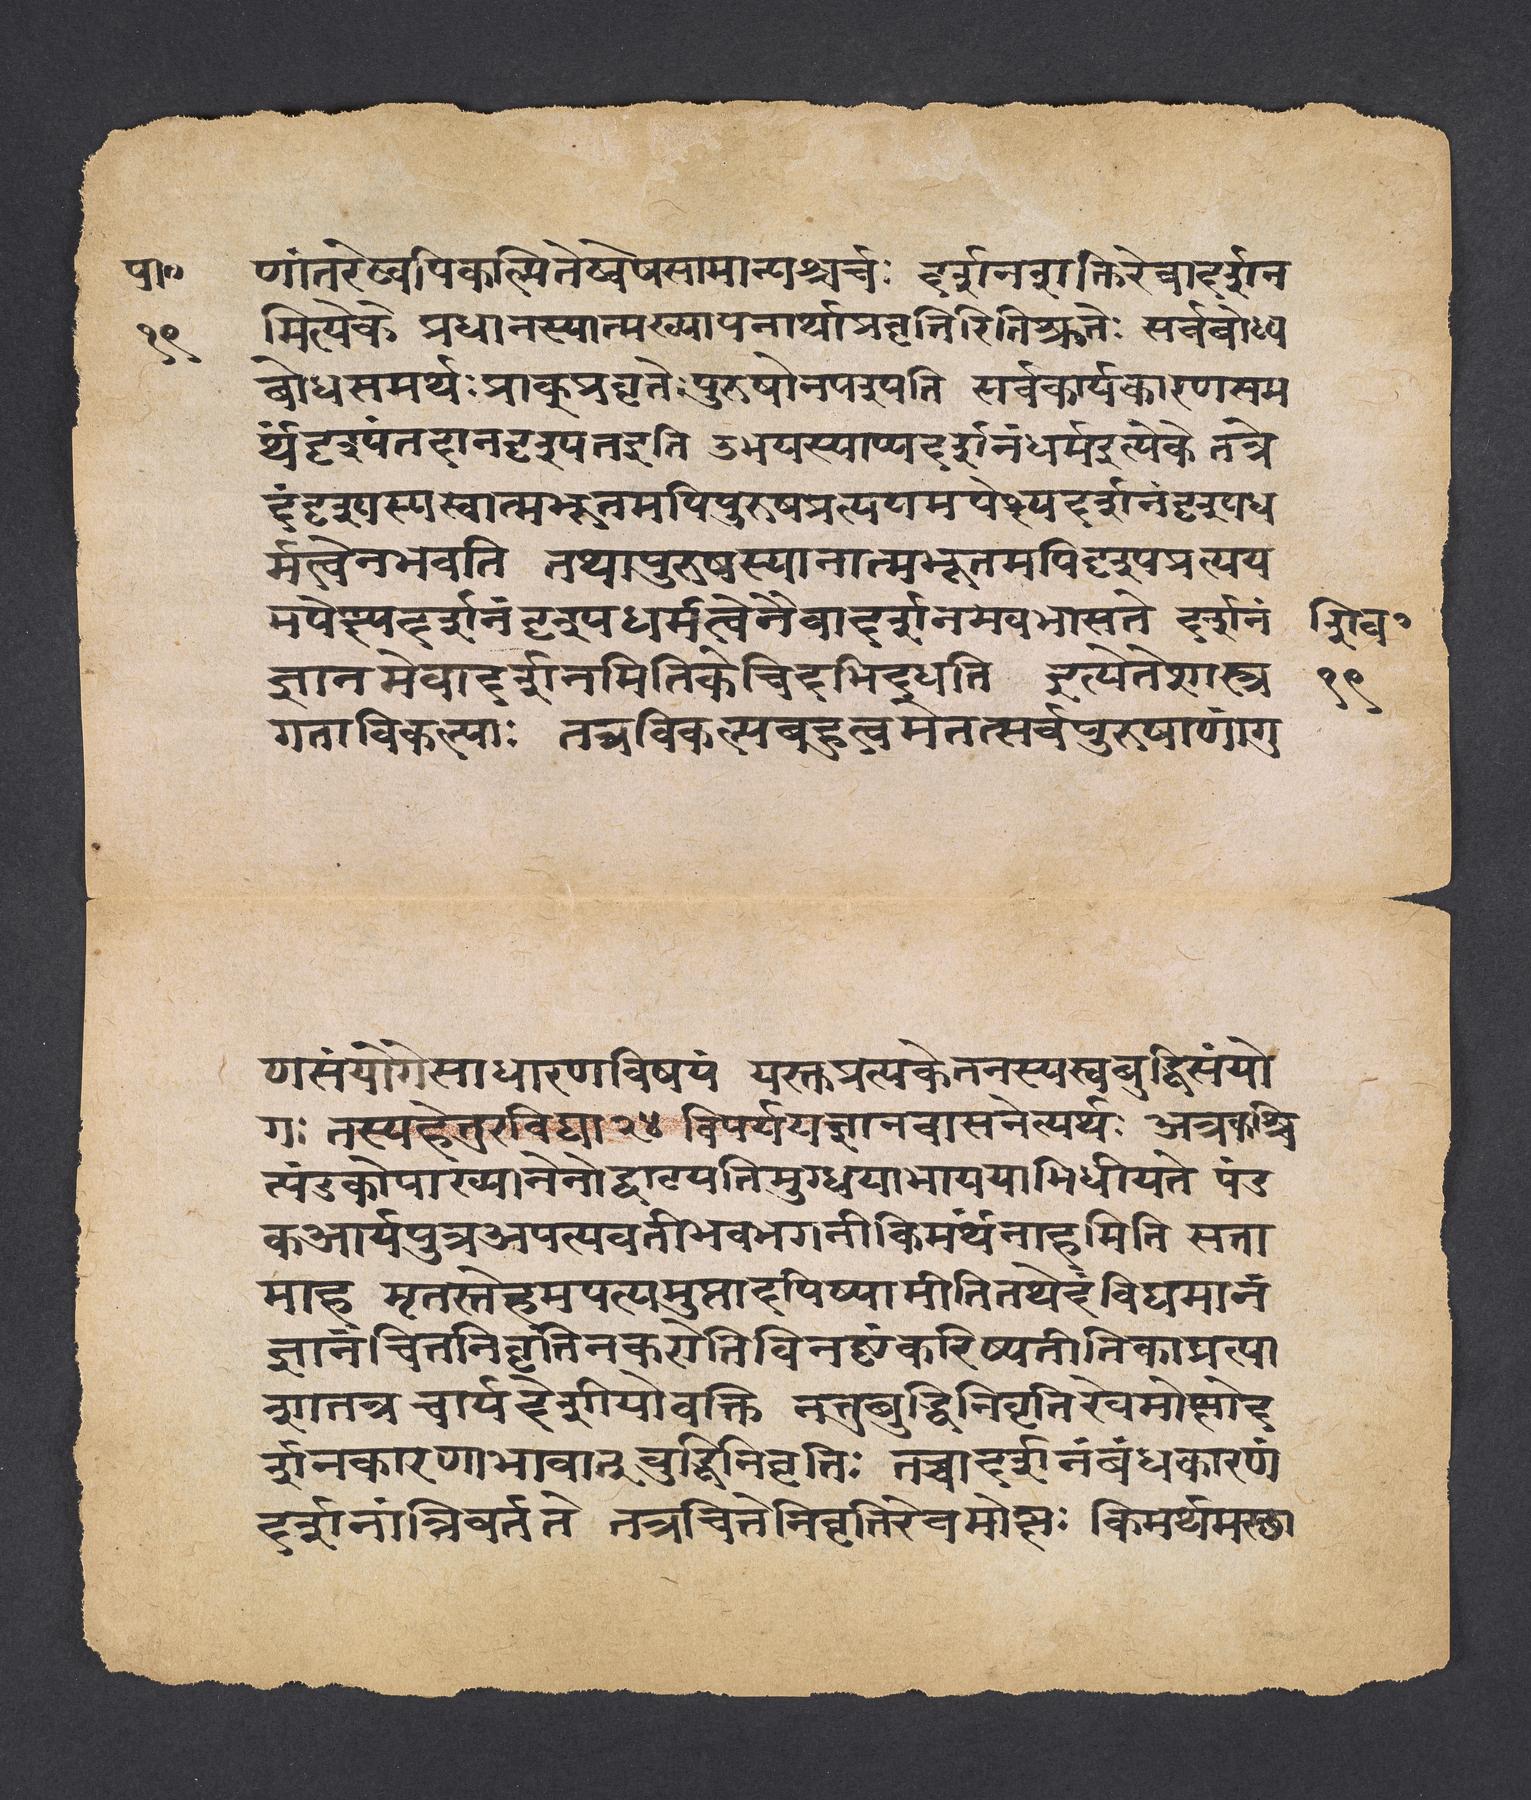 पा॰ णांतरेष्वपिकल्पितेष्वेषसामान्यश्चर्चः दर्शनशक्तिरेवादर्शन
१९ मित्येके प्रधानस्यात्मख्यापनार्थाप्रवृत्तिरितिश्रुतेः सर्वबोध्य
बोधसमर्थः प्राक्प्रवृत्तेः पुरुषोनपश्यति सर्वकार्यकारणसम
र्थंदृश्यंतदानदृश्यतइति उभयस्याप्यदर्शनंधर्मइत्येके तत्रे
दंदृश्यस्यस्वात्मभूतमपिपुरुषप्रत्ययमपेक्ष्यदर्शनंदृश्यध
र्मत्वेनभवति तथापुरुषस्यानात्मभूतमपिदृश्यप्रत्यय
मपेक्ष्यदर्शनंदृश्यधर्मत्वेनैवादर्शनमवभासते दर्शनं शिव॰
ज्ञानमेवादर्शनमितिकेचिदभिदधति इत्येतेशास्त्र १९
गताविकल्पाः तत्रविकल्पबहुत्वमेतत्सर्वपुरुषाणांगु
णसंयोगेसाधारणविषयं यस्तुप्रत्यक्चेतनस्यस्वबुद्धिसंयो
गः तस्यहेतुरविद्या २४ विपर्ययज्ञानवासनेत्यर्थः अत्रकश्चि
त्पंडकोपाख्यानेनोद्घाटयतिमुग्धयाभाययाभिधीयते पंड
कआर्यपुत्रअपत्यवतीभवभगनीकिमर्थंनाहमिति सता
माह मृतस्तेहमपत्यमुत्पादयिष्यामीतितथेदंविद्यमानं
ज्ञानंचित्तनिवृत्तिंनकरोतिविनष्टंकरिष्यतीतिकाप्रत्या
शातत्र चार्यदेशीयोवक्ति ननुबुद्धिनिवृत्तिरेवमोक्षोद
र्शनकारणाभावात् बुद्धिनिवृत्तिः तच्चादर्शनंबंधकारणं
दर्शनान्निवर्तते तत्रचित्तेनिवृत्तिरेवमोक्षः किमर्थमस्था